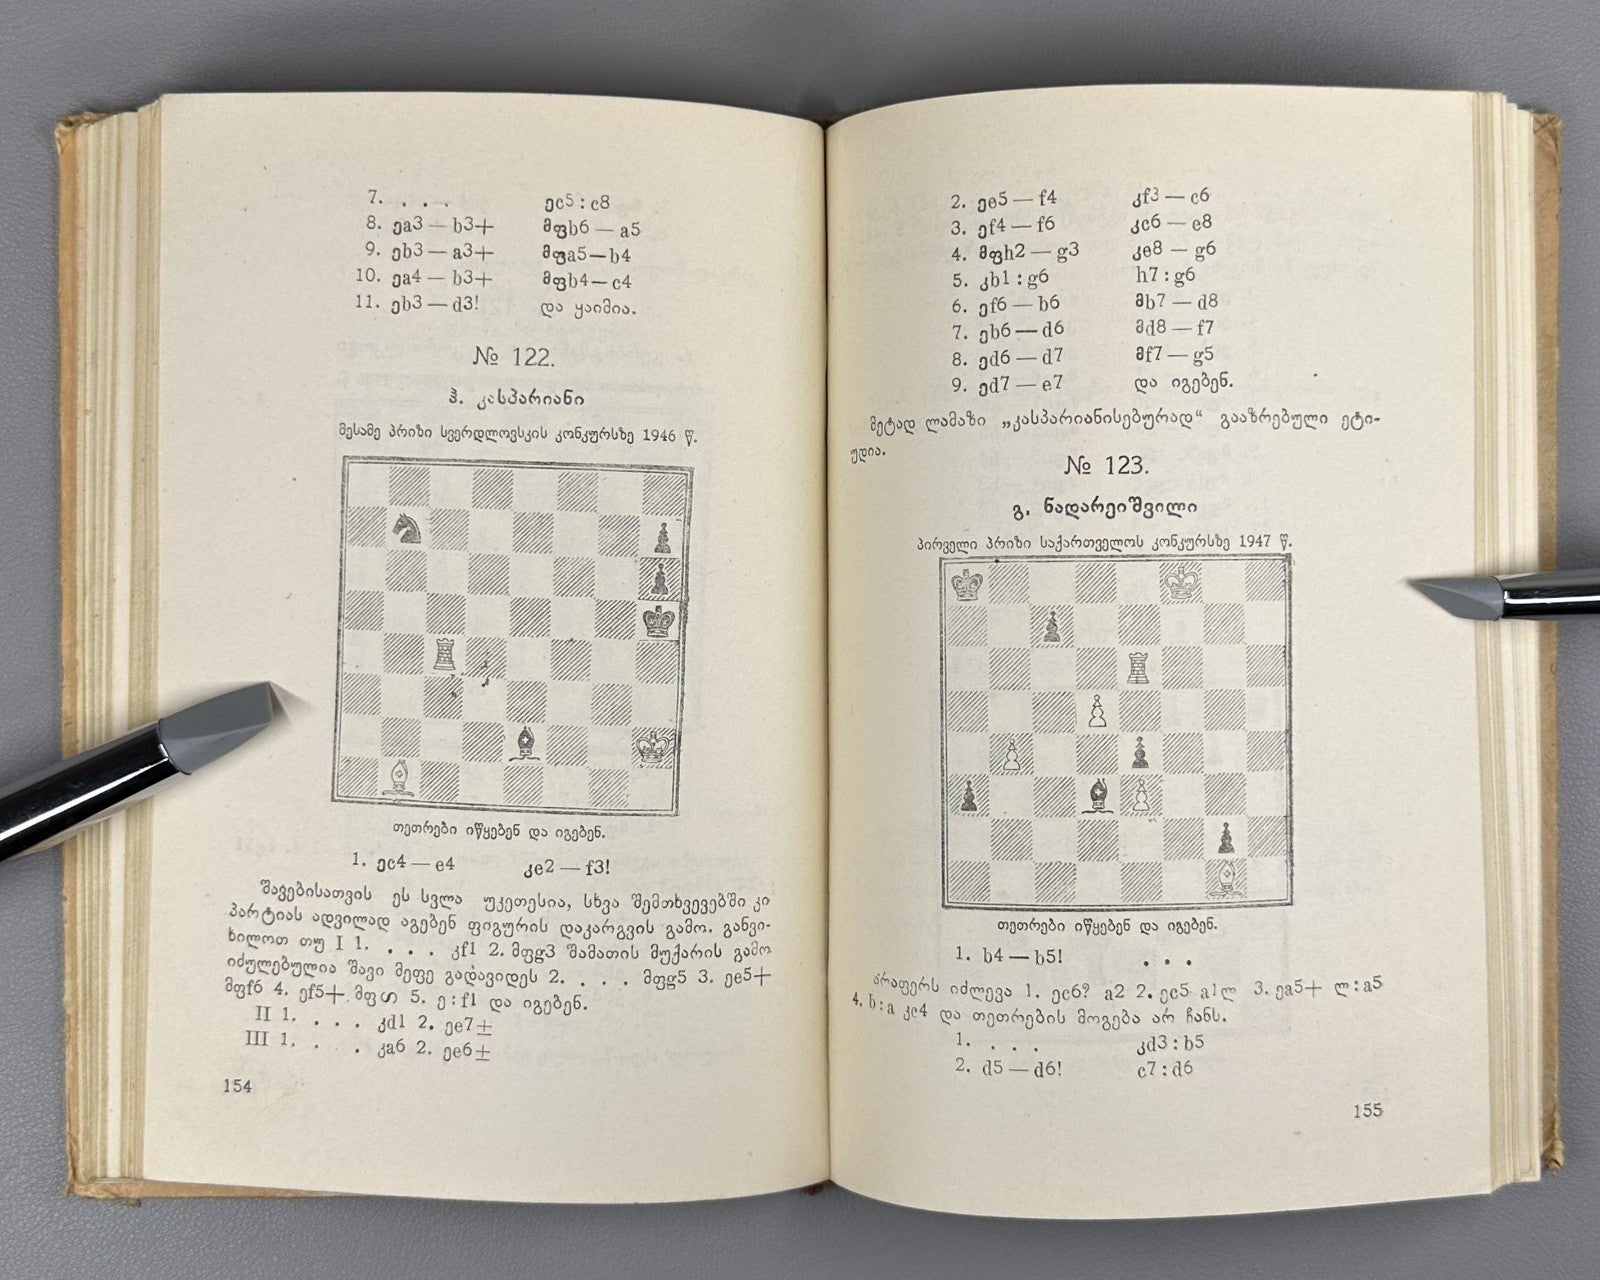 7. . . . ეc5 : c8
8. ეa3 — b3+ მფb6 — a5
9. ეb3 — a3+ მფa5—b4
10. ეa4 — b3+ მფb4—c4
11. ეb3 — d3! და ყაიმია.
№ 122.
ჰ. კასპარიანი
მესამე პრიზი სვერდლოვსკის კონკურსზე 1946 წ.
თეთრები იწყებენ და იგებენ.
1. ეc4 — e4 კe2 — f3!
შავებისათვის ეს სვლა უკეთესია, სხვა შემთხვევებში კი
პარტიას ადვილად აგებენ ფიგურის დაკარგვის გამო. განვი-
ხილოთ თუ I 1. . . . კf1 2. მფg3 შამათის მუქარის გამო
იძულებულია შავი მეფე გადავიდეს 2. . . . მფg5 3. ეe5+
მფf6 4. ეf5+ მფ 5. ე : f1 და იგებენ.
II 1. . . . კd1 2. ეe7±
III 1. . . . კa6 2. ეe6±
154
2. ეe5 — f4 კf3 — c6
3. ეf4 — f6 კc6 — e8
4. მფh2 — g3 კe8 — g6
5. კb1 : g6 h7 : g6
6. ეf6 — b6 მb7 — d8
7. ეb6 — d6 მd8 — f7
8. ეd6 — d7 მf7 — g5
9. ეd7 — e7 და იგებენ.
მეტად ლამაზი „კასპარიანისებურად“ გააზრებული ეტი-
უდია.
№ 123.
გ. ნადარეიშვილი
პირველი პრიზი საქართველოს კონკურსზე 1947 წ.
თეთრები იწყებენ და იგებენ.
1. b4 — b5! . . .
არაფერს იძლევა 1. ეc6? a2 2. ეc5 a1ლ 3. ეa5+ ლ : a5
4. b : a კc4 და თეთრების მოგება არ ჩანს.
1. . . . კd3 : b5
2. d5 — d6! c7 : d6
155